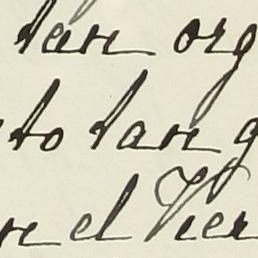 tan org
to tan g
n el Vier